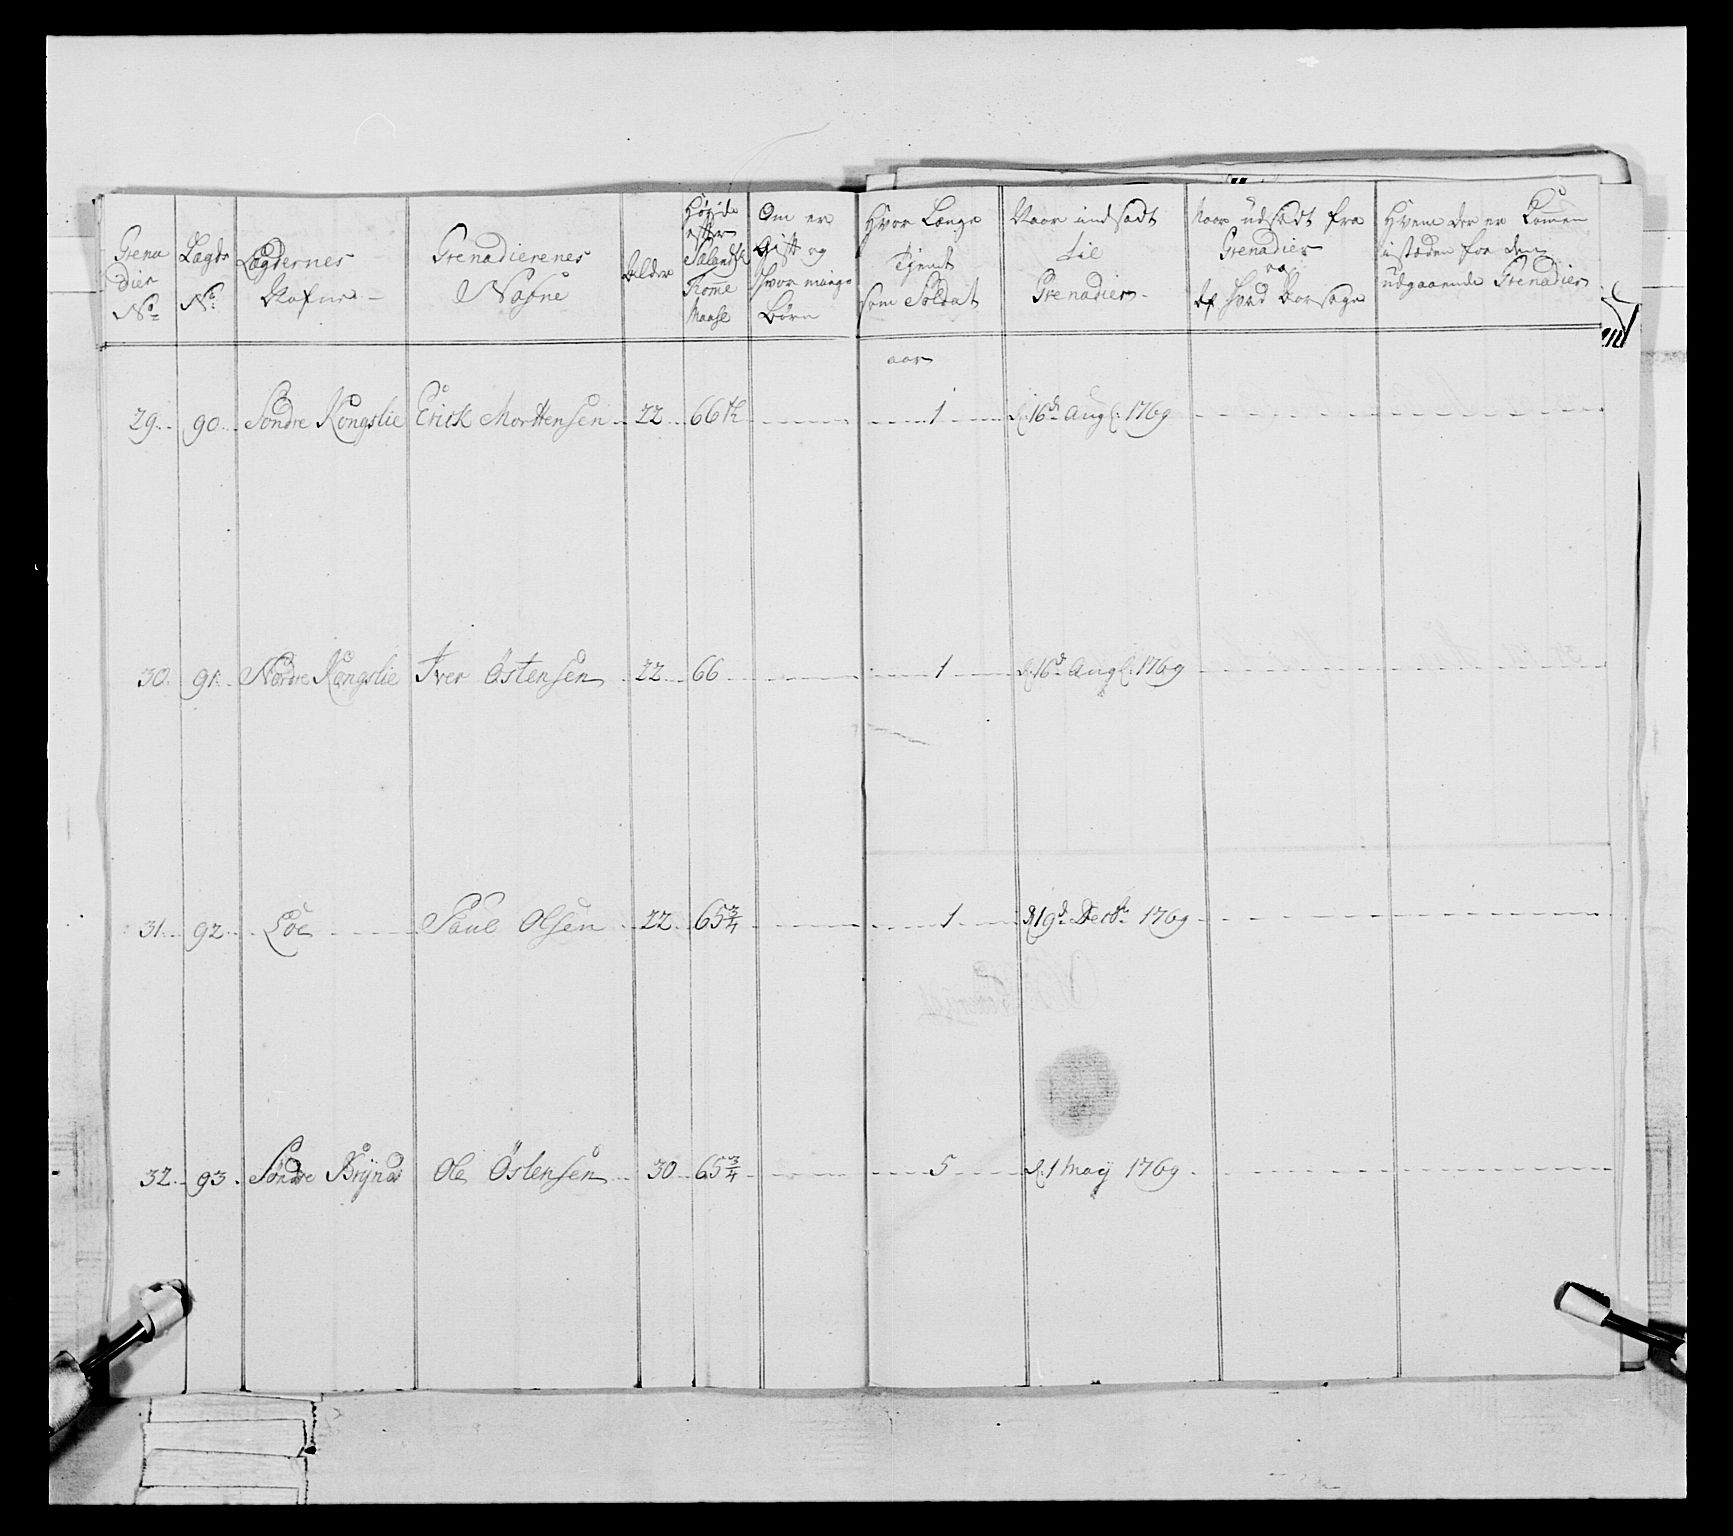 Grena
dier
No
Lægds
No
Lægdernes
Nafne
Grenadierenes
Nafne
Alder
Høyde
efter
Sælandsk
Tomme
Maase
Om er
Gift og
hvor mange
Børn
Hvor Længe
Tjendt
som Soldat
Naar indsadt
til
Grenadier
Naar udsadt fra
Grenadier
og
Af hvad Aarsage
Hvem der er komen
isteden for den
udgaaende Grenadier
aar
29 90 Søndre Kongslie Erick Morttensen 22 66 1 d. 16d Aug. 1769
30 91 Nordre Kongslie Iver Östensen 22 66 1 d. 16d Aug. 1769
31 92 Loe Paul Olsen 22 65 3/4 1 d. 19d Decbr 1769
32 93 Søndre Brÿnas Ole Östensen 30 65 3/4 5 d. 1 Maÿ 1769